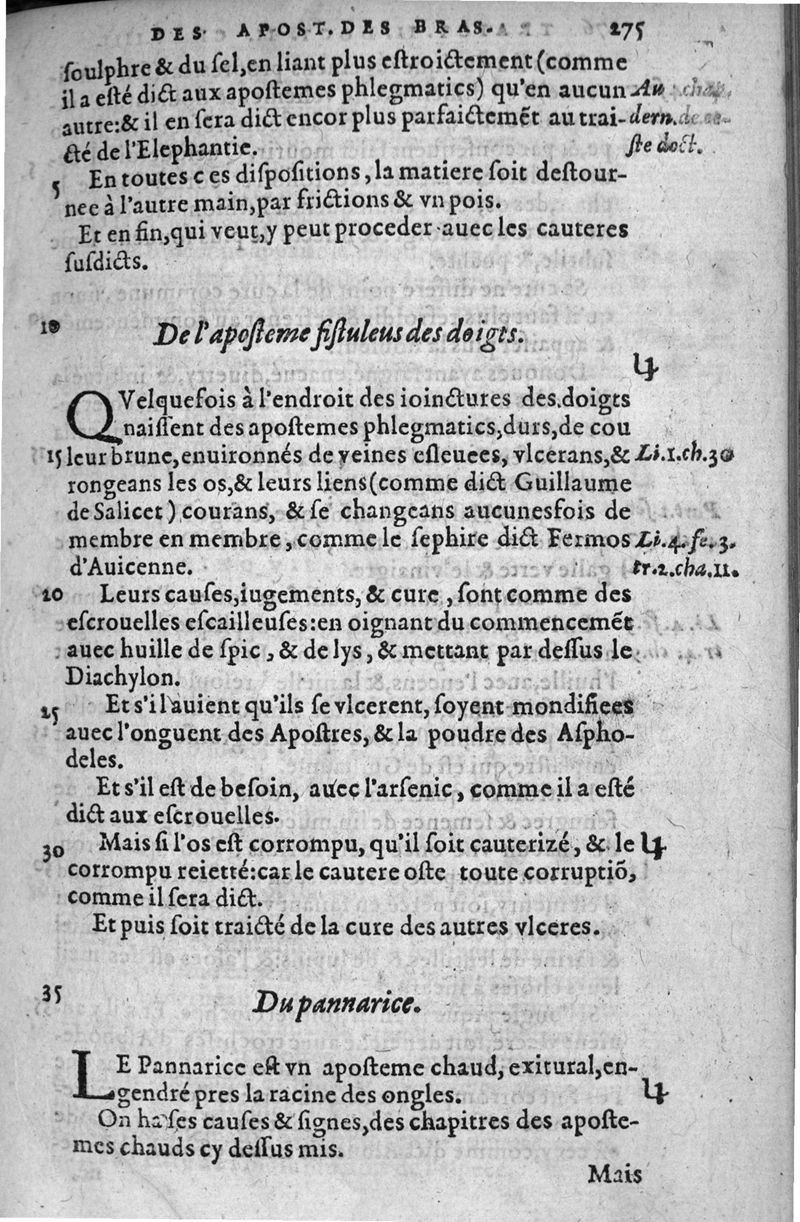 DES APOST. DES BRAS. 275
ſoulphre & du ſel, en liant plus eſtroictement (comme
il a eſté dict aux apoſtemes phlegmatics) qu'en aucun Au chap.
autre: & il en ſera dict encor plus parfaictemẽt au trai- dern. de
cté de l'Elephantie. ſte doct.
5 En toutes ces diſpoſitions, la matiere ſoit deſtour-
nee à l'autre main, par frictions & vn pois.
Et en fin, qui veut, y peut proceder auec les cauteres
ſuſdicts.
10 De l'apoſteme fiſtuleus des doigts.
4
QVelquefois à l'endroit des ioinctures des doigts
naiſſent des apoſtemes phlegmatics, durs, de cou
15 leur brune, enuironnés de veines eſleuees, vlcerans, & Li.1.ch.30
rongeans les os, & leurs liens (comme dict Guillaume
de Salicet) courans, & ſe changeans aucunesfois de
membre en membre, comme le ſephire dict Fermos Li.4.fe.3.
d'Auicenne. tr.2.cha.11.
20 Leurs cauſes, iugements, & cure, ſont comme des
eſcrouelles eſcailleuſes: en oignant du commencemẽt
auec huille de ſpic, & de lys, & mettant par deſſus le
Diachylon.
25 Et s'il auient qu'ils ſe vlcerent, ſoyent mondifiees
auec l'onguent des Apoſtres, & la poudre des Aſpho-
deles.
Et s'il eſt de beſoin, auec l'arſenic, comme il a eſté
dict aux eſcrouelles.
30 Mais ſi l'os eſt corrompu, qu'il ſoit cauterizé, & le 4
corrompu reietté: car le cautere oſte toute corruptiõ,
comme il ſera dict.
Et puis ſoit traicté de la cure des autres vlceres.
35 Du pannarice.
LE Pannarice eſt vn apoſteme chaud, exitural, en-
gendré pres la racine des ongles. 4
On ha ſes cauſes & ſignes, des chapitres des apoſte-
mes chauds cy deſſus mis.
Mais